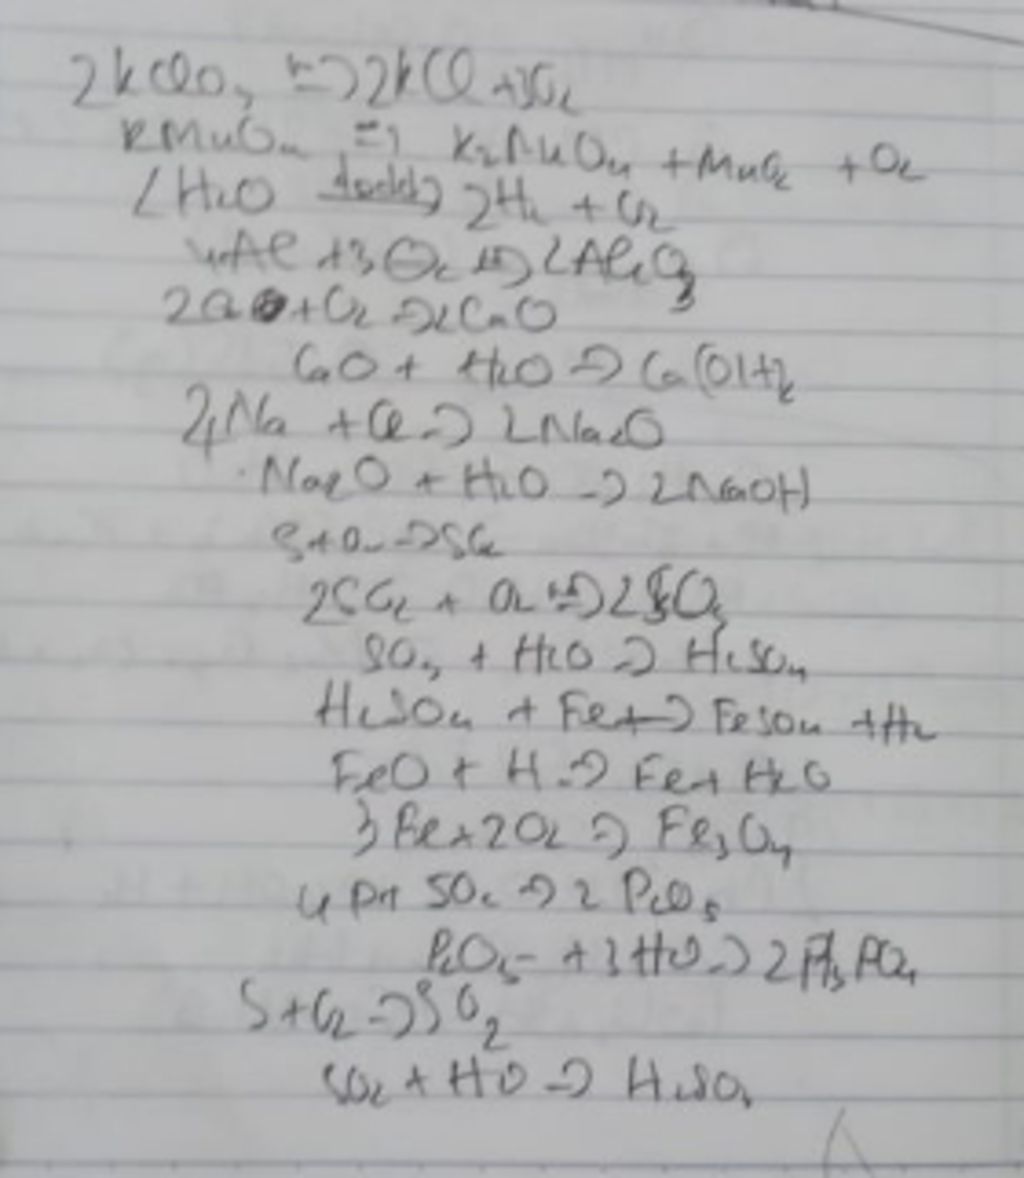 2KClO3 => 2KCl + 3O2
KMnO4 => K2MnO4 + MnO2 + O2
2H2O 2H2 + O2
4Al + 3O2 => 2Al2O3
2Ca + O2 => 2CaO
CaO + H2O => Ca(OH)2
4Na + O2 => 2Na2O
Na2O + H2O -> 2NaOH
S + O2 -> SO2
2SO2 + O2 => 2SO3
SO3 + H2O => H2SO4
H2SO4 + Fe -> FeSO4 + H2
FeO + H => Fe + H2O
3Fe + 2O2 => Fe3O4
4P + 5O2 => 2P2O5
P2O5 + 3H2O -> 2H3PO4
S + O2 -> SO2
SO2 + H2O => H2SO3